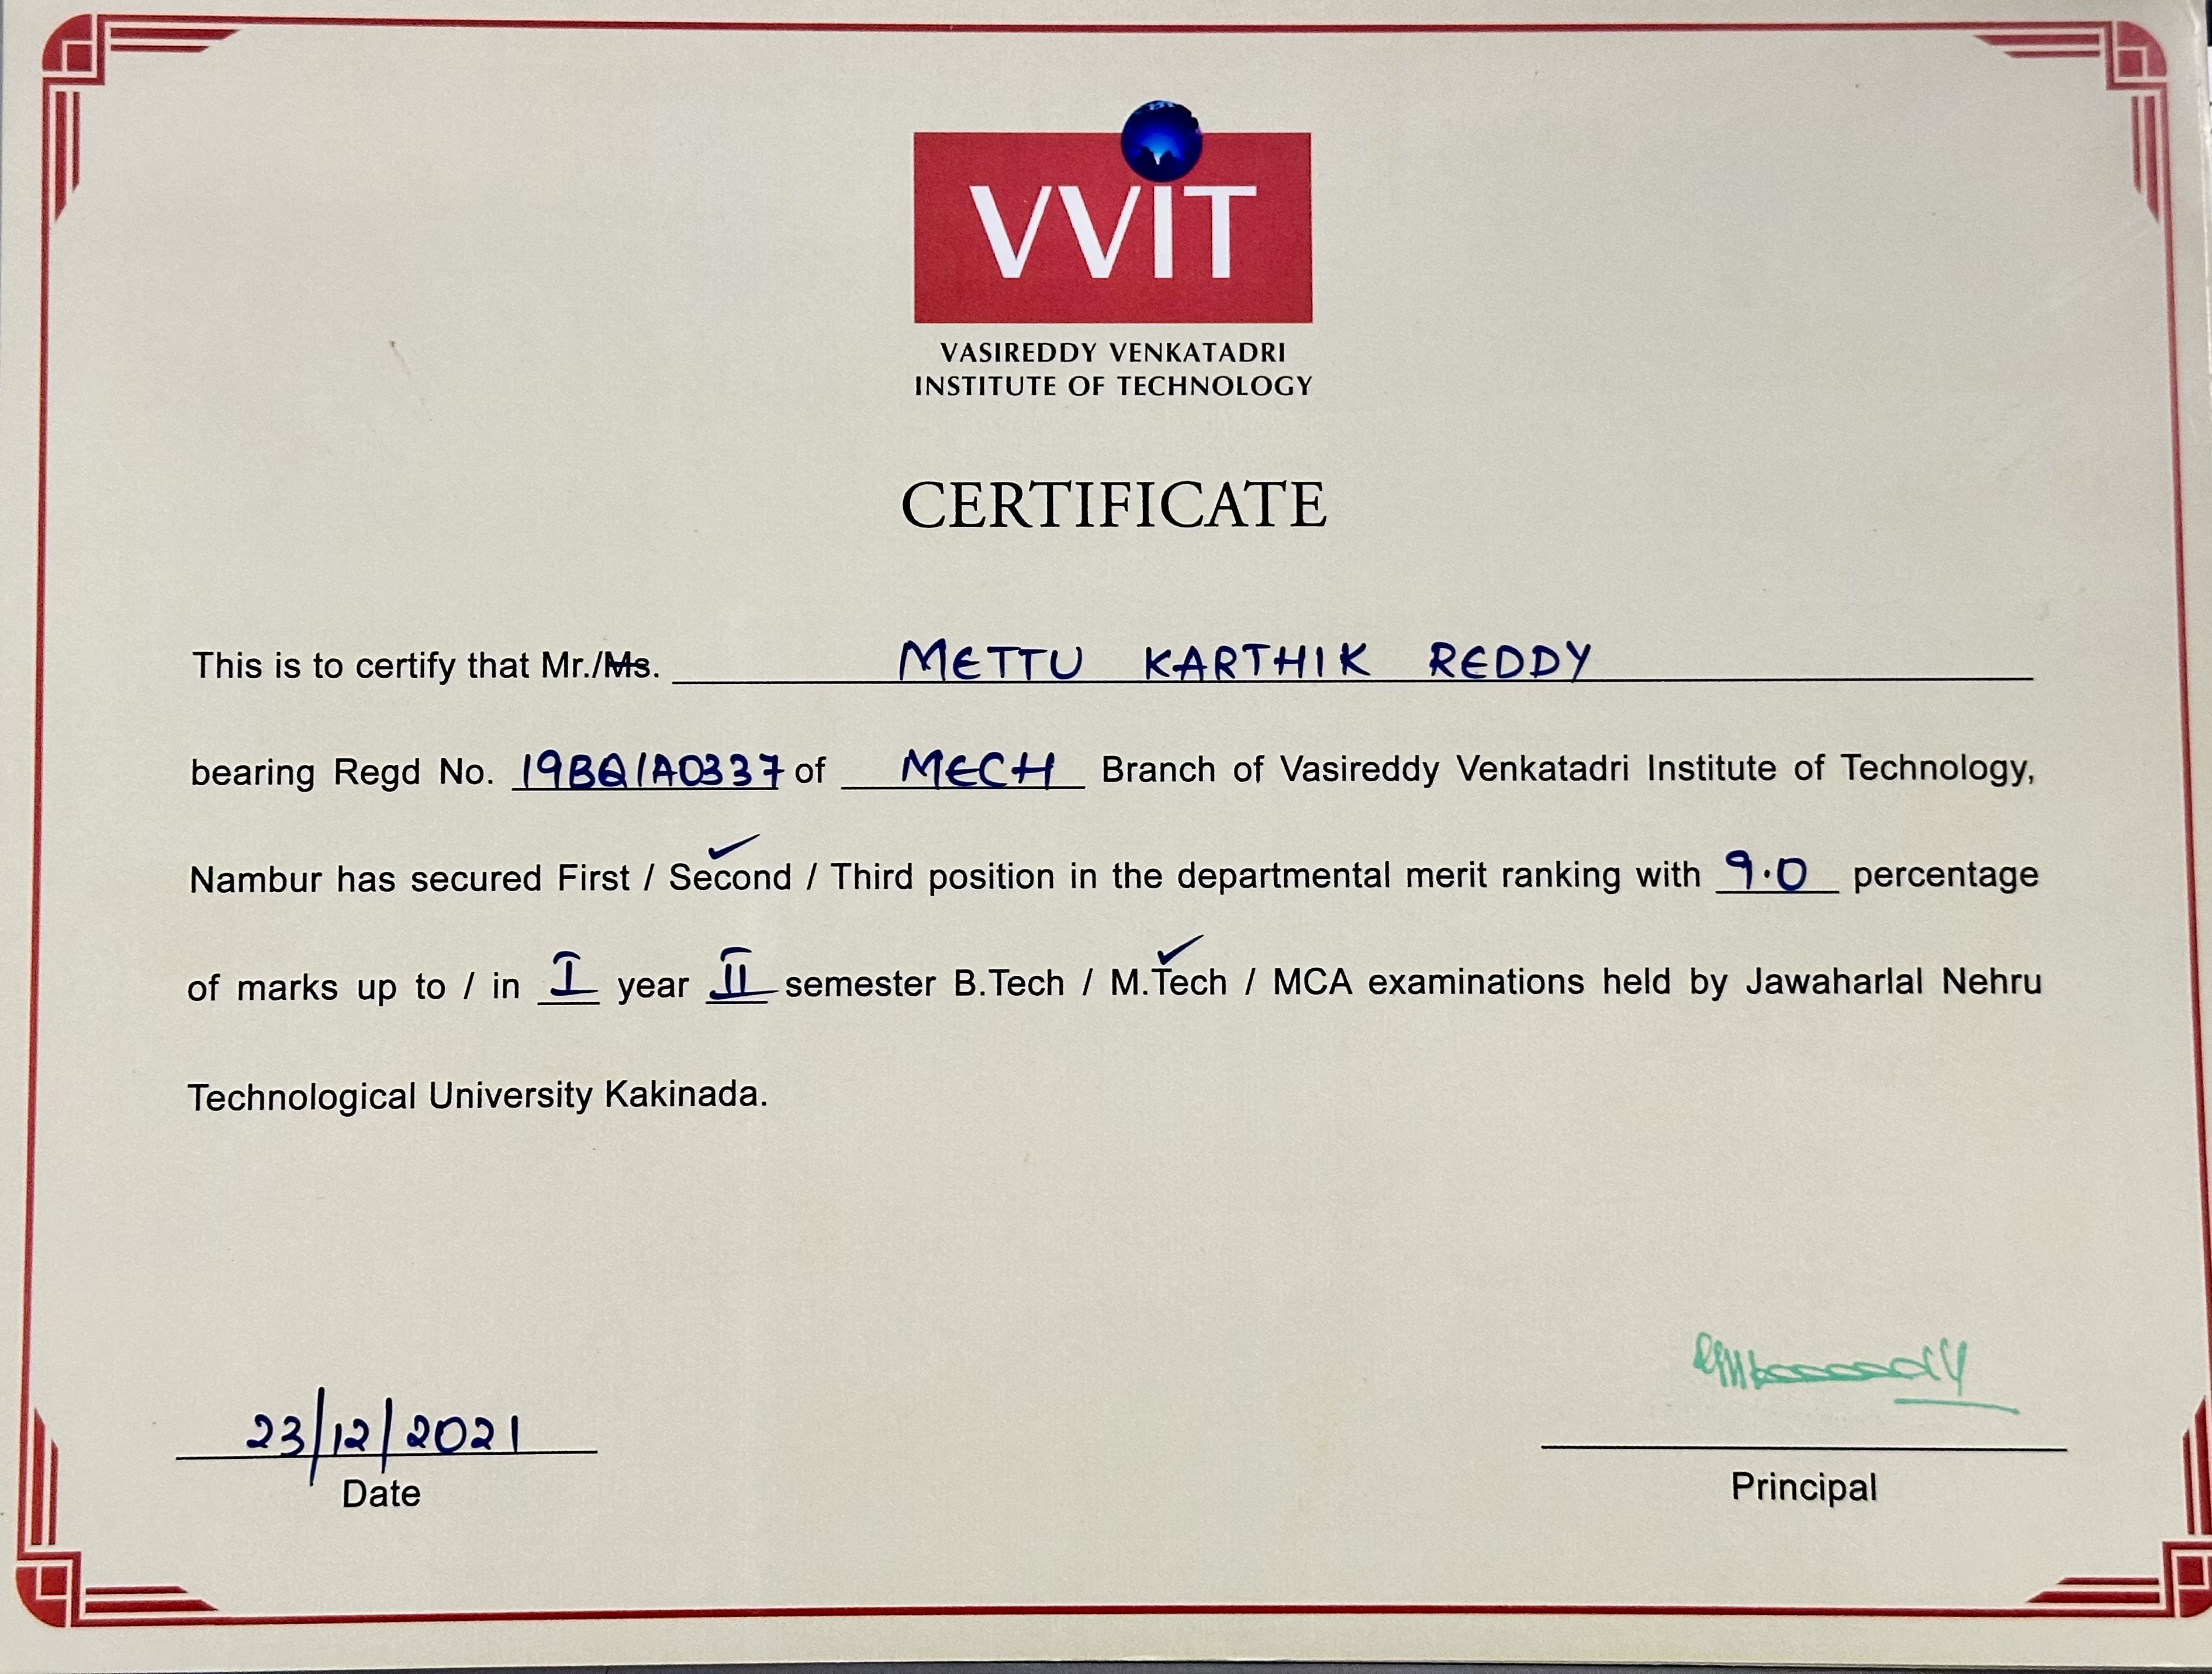 VVIT
VASIREDDY VENKATADRI
INSTITUTE OF TECHNOLOGY
CERTIFICATE
This is to certify that Mr./Ms. METTU KARTHIK REDDY
bearing Regd No. 19BQ1A0337 of MECH Branch of Vasireddy Venkatadri Institute of Technology,
Nambur has secured First / Second / Third position in the departmental merit ranking with 9.0 percentage
of marks up to / in I year II semester B.Tech / M.Tech / MCA examinations held by Jawaharlal Nehru
Technological University Kakinada.
23/12/2021
Date
Principal